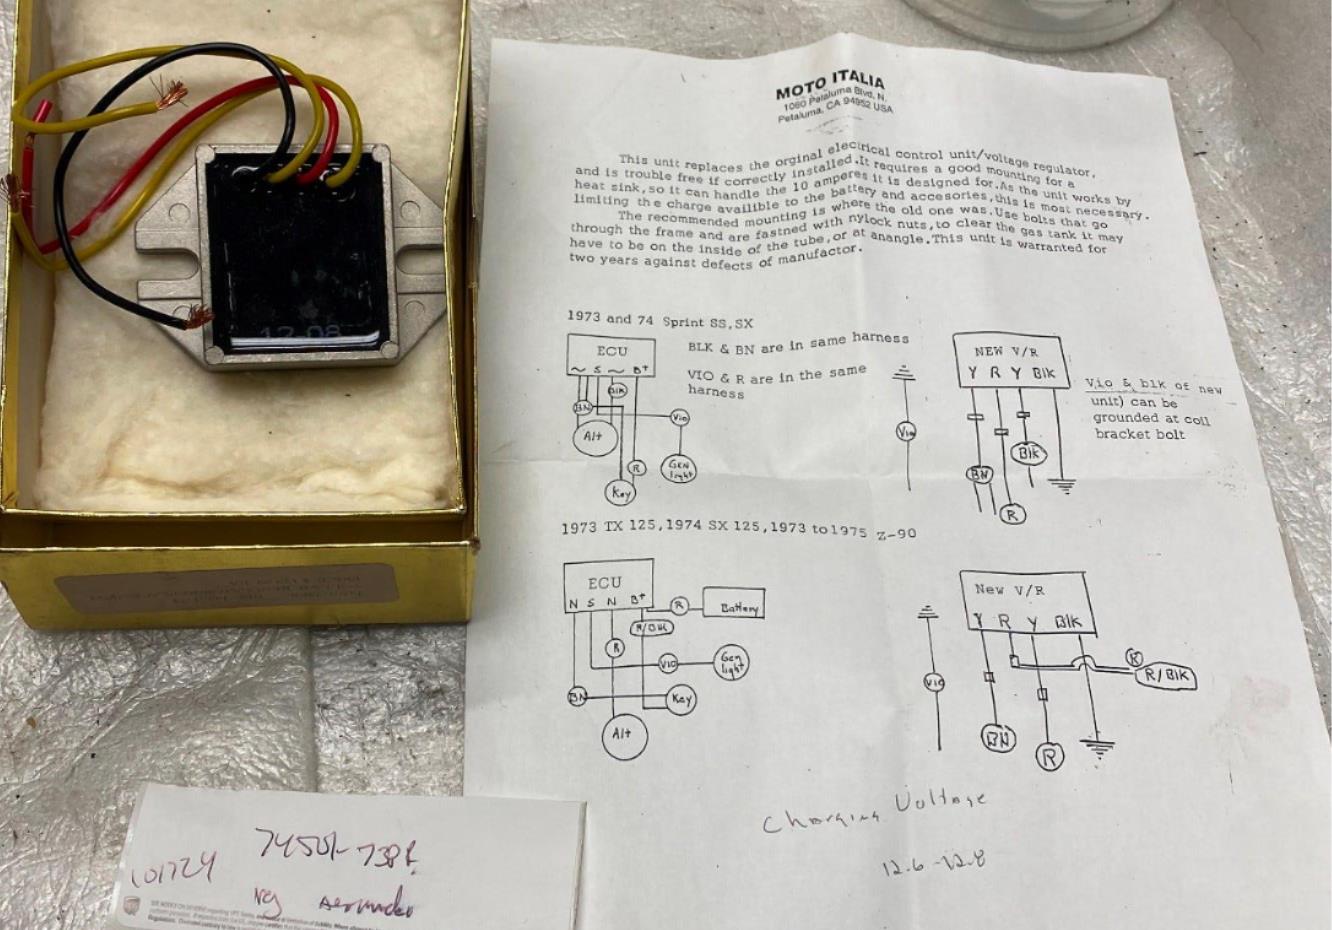 12-08
MOTO ITALIA
1060 Petaluma Blvd, N.
Petaluma, CA 94952 USA
This unit replaces the orginal electrical control unit/voltage regulator,
and is trouble free if correctly installed.It requires a good mounting for a
heat sink,so it can handle the 10 amperes it is designed for.As the unit works by
limiting the charge availible to the battery and accesories,this is most necessary.
The recommended mounting is where the old one was.Use bolts that go
through the frame and are fastned with nylock nuts,to clear the gas tank it may
have to be on the inside of the tube,or at anangle.This unit is warranted for
two years against defects of manufactor.
1973 and 74 Sprint SS,SX
ECU
~ S ~ B+
BLK & BN are in same harness
VIO & R are in the same
harness
BN
Blk
Vio
Alt
R
Gen
light
Key
Vio
NEW V/R
Y R Y Blk
BN
Blk
R
Vio & blk of new
unit) can be
grounded at coil
bracket bolt
1973 TX 125,1974 SX 125,1973 to1975 Z-90
ECU
N S N B+
R
Battery
R/Blk
R
Vio
Gen
light
BN
Key
Alt
Vio
New V/R
Y R Y Blk
R
R/Blk
BN
R
Charging Voltage
12.6-12.8
101724
74501-73PR